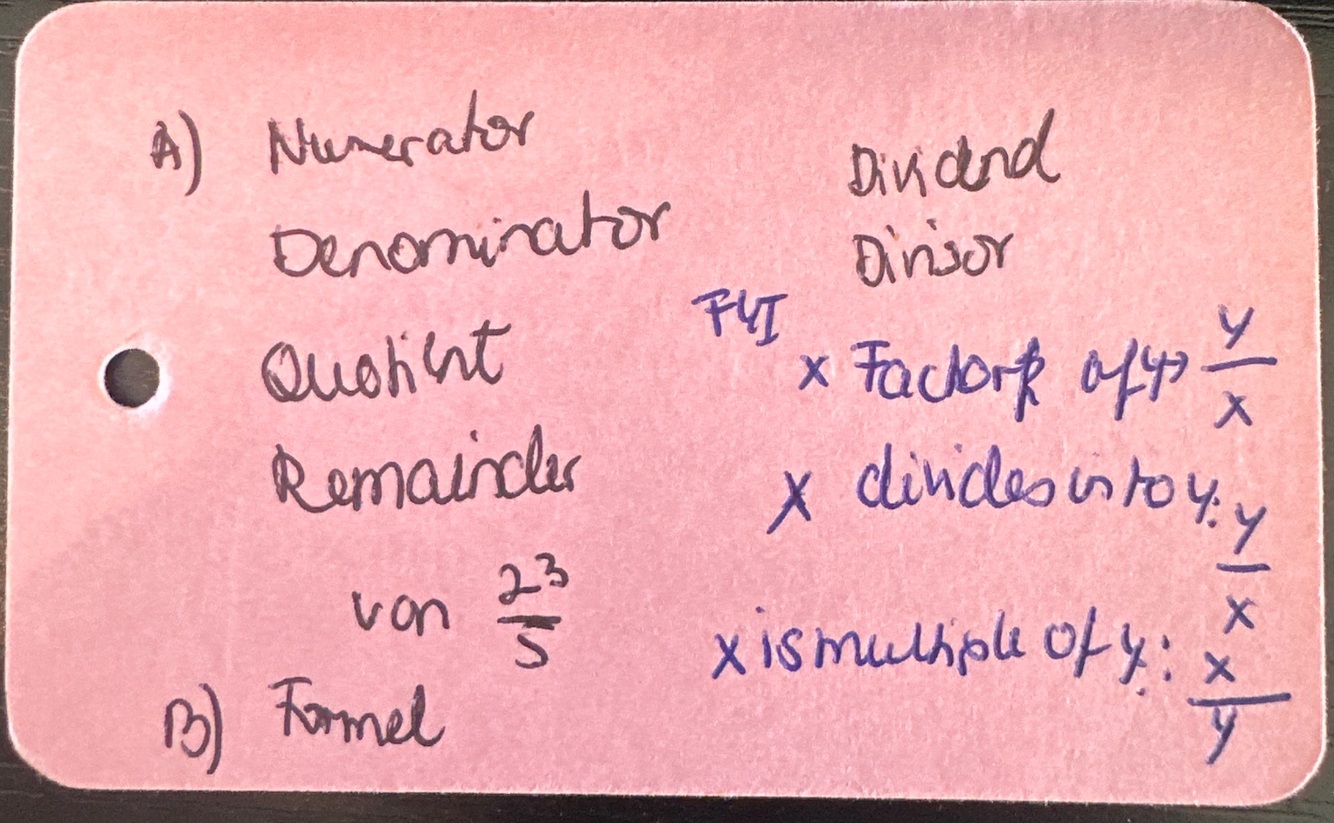 A) Numerator Dividend
Denominator Divisor
Quotient
Remainder
von 23/5
B) Formel
FYI
x Factor of y → y/x
x divides into y: y/x
x is multiple of y: x/y